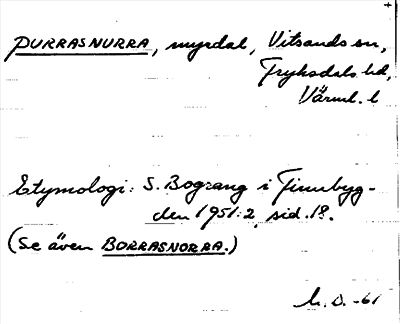 PURRASNURRA, myrdal, Vitsands sn,
Fryksdals hd,
Värml. l
Etymologi: S. Bograng i Finnbyg-
den 1951:2, sid. 18.
(Se även BORRASNORRA.)
D. -61